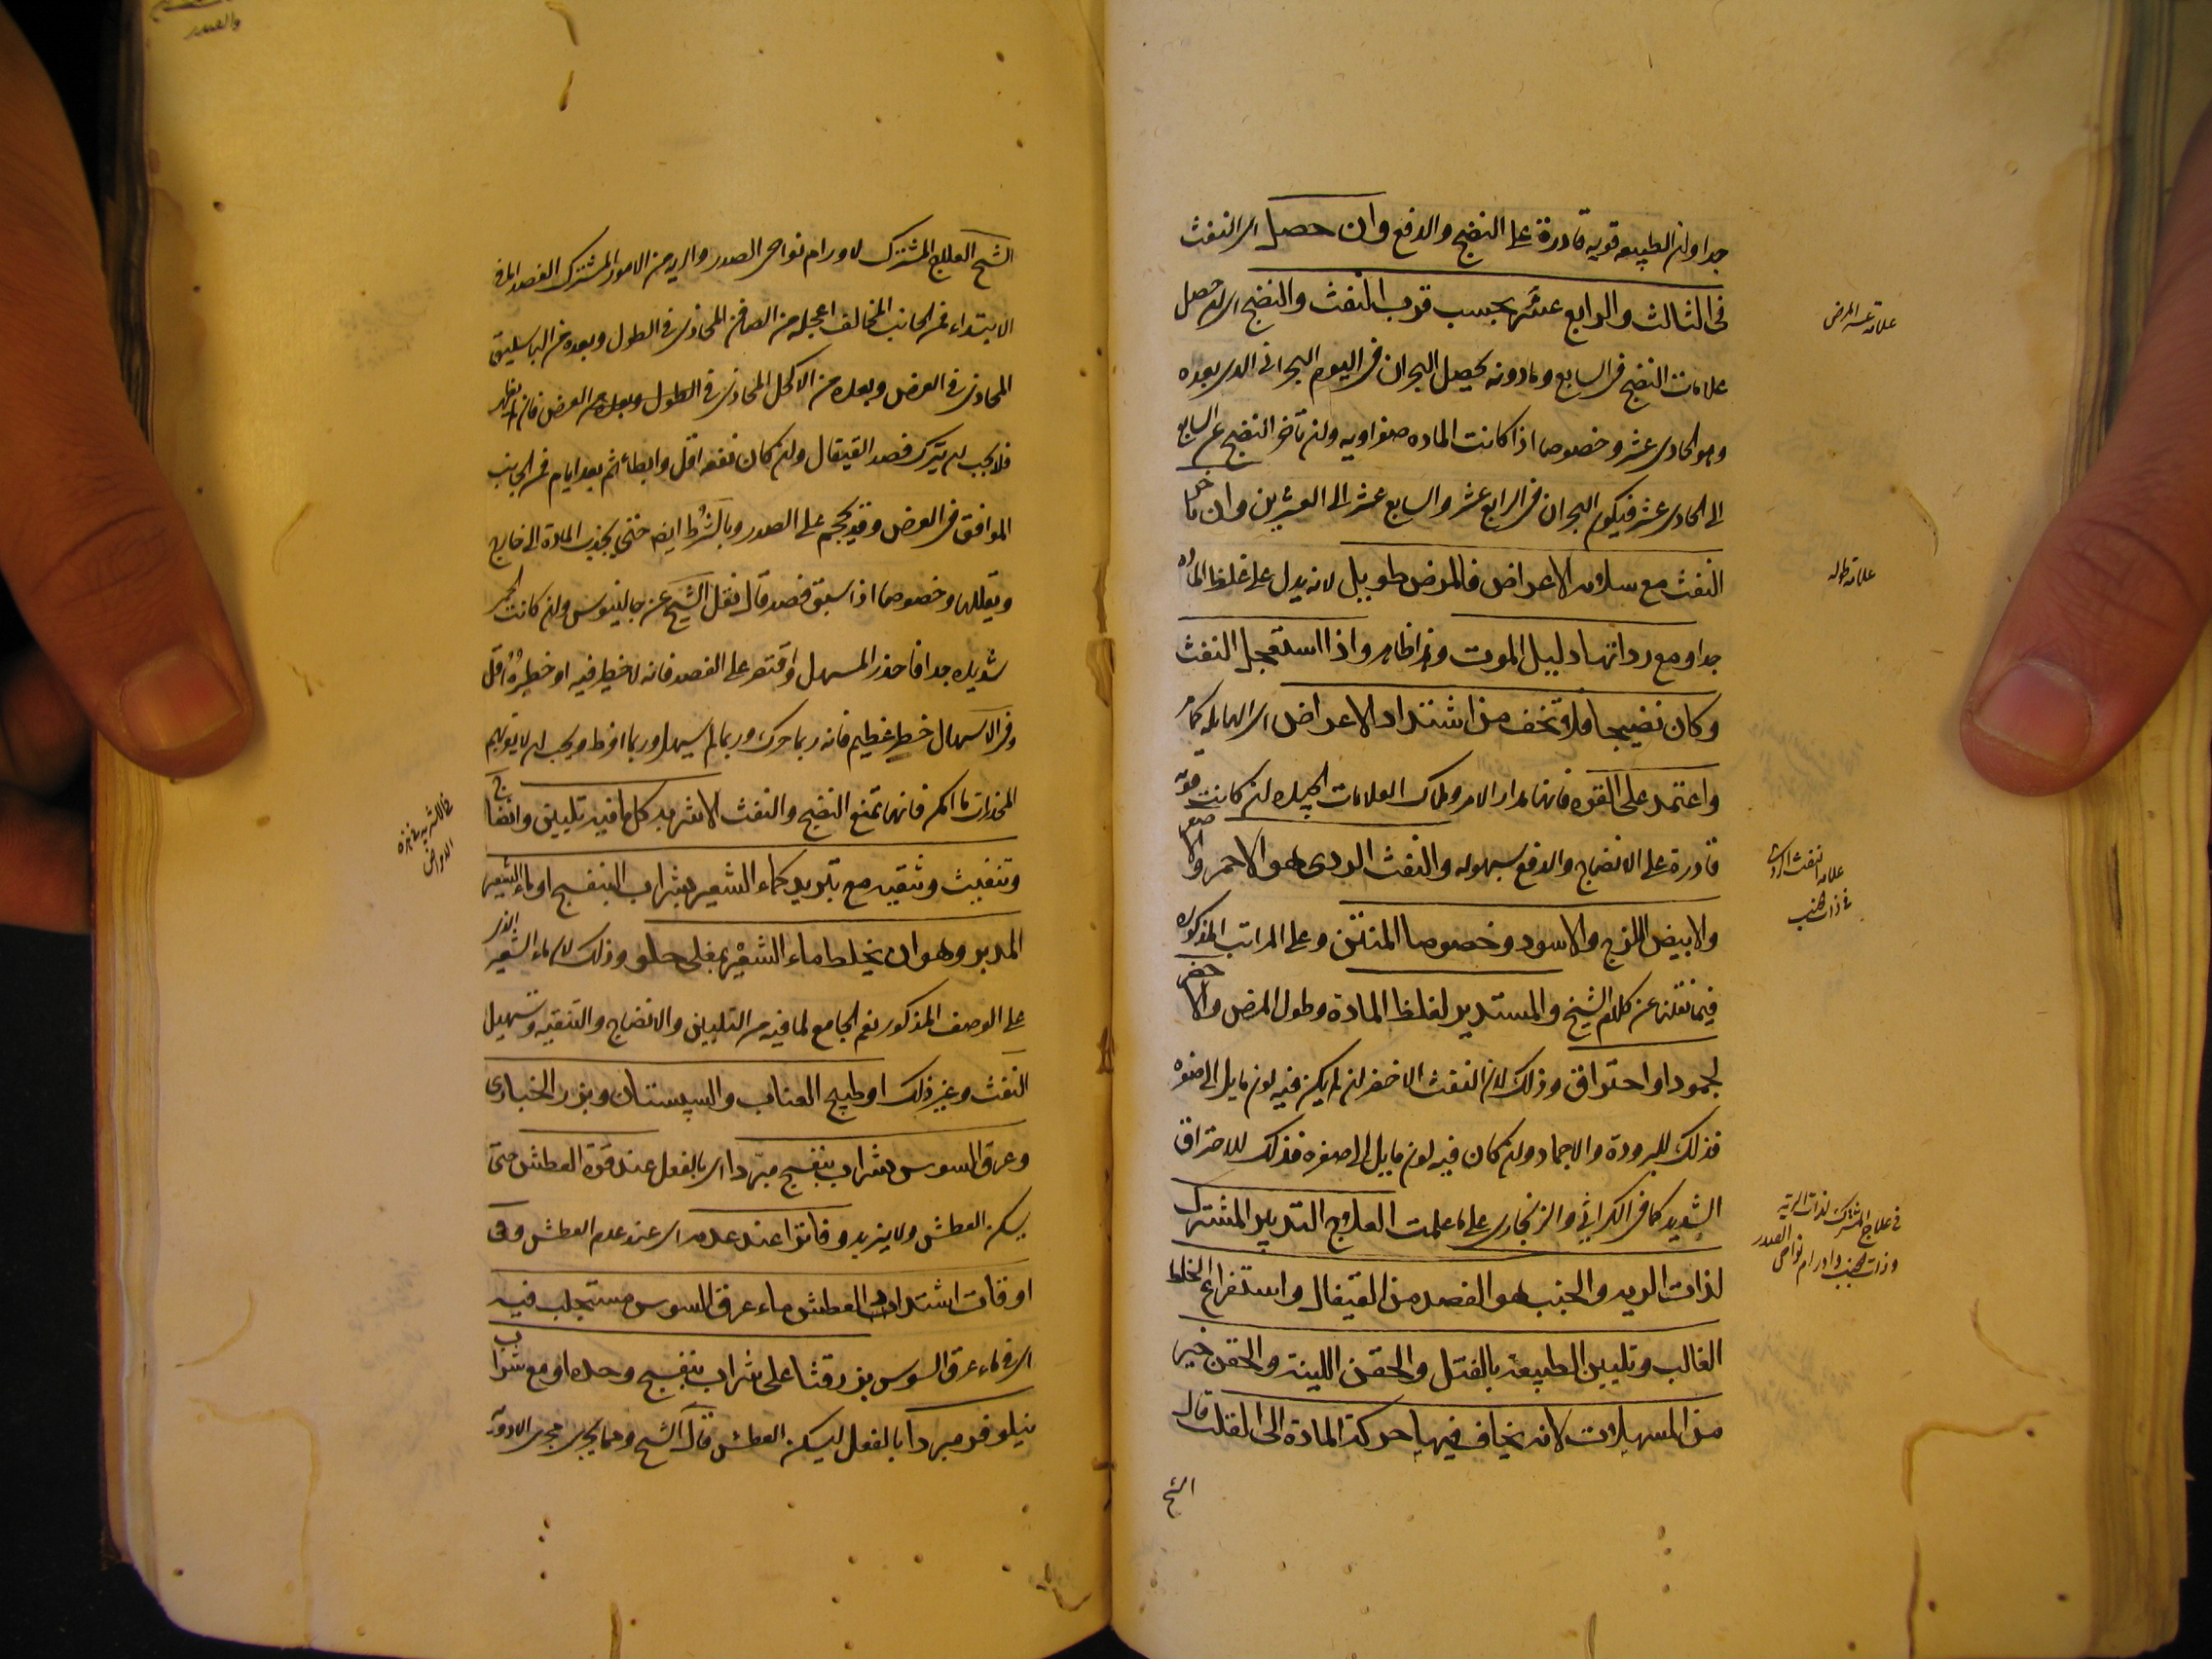 جدا ولان الطبيعه قويه قادرة على النضج والدفع وان حصل اى النفث
فى الثالث والرابع عشر بحسب قرب النفث والنضج اى ان حصل
علامات النضج فى السابع ومادونه يحصل البحران فى اليوم البحرانى الذى بعده
وهو الحادى عشر وخصوصا اذا كانت الماده صفراويه وان تأخر النضج عن السابع
الى الحادى عشر فيكون البحران فى الرابع عشر والسابع عشر الى العشرين وان تأخر
النفث مع سلامه الاعراض فالمرض طويل لانه يدل على غلظ الماده
جدا ومع رداتها دليل الموت وهذا ظاهر واذا استعجل النفث
وكان نضيجا فلا تخف من اشتداد الاعراض اى الهايله كما
واعتمد على القوه فانها مدار الامر وملاك العلامات الجيده ان كانت قويه
قادرة على الانضاج والدفع بسهوله والنفث الردى هو الاحمر والاصفر
والابيض اللزج والاسود وخصوصا المنتن وعلى المراتب المذكوره
فيما نقلنا عن كلام الشيخ والمستدير لغلظ المادة وطول المرض والاخضر
لجمود او احتراق وذلك لان النفث الاخضر ان لم يكن فيه لون مايل الى صفره
فذلك للبرودة والاجماد وان كان فيه لون مايل الى صفره فذلك للاحتراق
الشديد كما فى الكراثى والزنجارى على ما علمت العلاج التدبير المشترك
لذات الريه والجنب هو الفصد من القيفال واستفراغ الخلط
الغالب وتليين الطبيعة بالفتل والحقن اللينة والحقن خير
من المسهلات لانه يخاف فيها حركة المادة الى القلب قال
الشيخ
علامة عسر المرض
علامة طوله
علامه النفث الردى
فى ذات الجنب
فى علاج المشترك لذات الريه
وذات الجنب واورام نواحى الصدر
الشيخ العلاج المشترك لاورام نواحى الصدر والريه من الامور المشترك الفصد اما فى
الابتداء فمن الجانب المخالف اعجله من الصافن المحاذى فى الطول وبعده من الباسليق
المحاذى فى العرض وبعده من الاكحل المحاذى فى الطول وبعده من العرض فان لم يظهر
فلا يجب ان يترك فصد القيفال وان كان نفعه اقل وابطاء ثم بعد ايام فمن الجانب
الموافق فى العرض وقد يحجم على الصدر وبالشرط ايضا حتى يجذب المادة الى خارج
ويقللها وخصوصا اذا سبق فصد قال نقل الشيخ عن جالينوس وان كانت الحمى
شديده جدا فاحذر المسهل واقتصر على الفصد فانه لا خطر فيه او خطره اقل
وفى الاسهال خطر عظيم فانه ربما حرك وربما لم يسهل وربما افرط ويجب ان لا يقربهم
المخدرات ما امكن فانها تمنع النضج والنفث الاشربه كل ما فيه تليين وانضاج
وتنفيث وتنقيه مع تبريد كماء الشعير بشراب البنفسج او ماء الشعير
المدبر وهو ان يخلط ماء الشعير بمغلى حلو وذلك لان ماء الشعير الذى
على الوصف المذكور نعم الجامع لما فيه من التليين والانضاج والتنقيه وتسهيل
النفث وغير ذلك او طبيخ العناب والسپستان وبزر الخبازى
وعرق السوس بشراب بنفسج مبردا اى بالفعل عند قوة العطش حتى
يسكن العطش ولا يزيد وفاترا عند عدمه اى عند عدم العطش وفى
اوقات اشتداد العطش ماء عرق السوس مستحلب فيه
اى فى ماء عرق السوس بزر قثا على شراب بنفسج وحده او مع شراب
نيلوفر مبردا بالفعل ليسكن العطش قال الشيخ ومما يجرى مجرى الادويه
فى الاشربه فى هذه
الامراض
والصدر